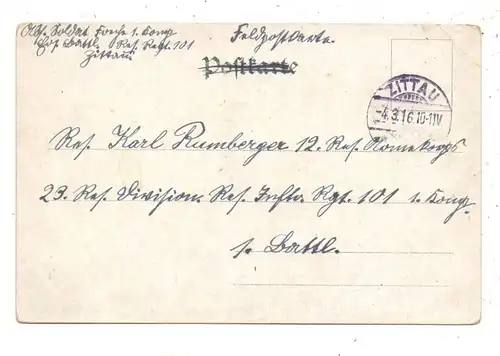 Abs. Soldat 1. Komp
Ers. Battl. Res. Regt. 101
Zittau
Feldpostkarte.
Postkarte
ZITTAU
-4.3.16.10-11V
Res. Karl Rumberger 12. Res. Armekorps
23. Res. Division. Res. Inftr. Rgt. 101 1. Komp
1. Battl.